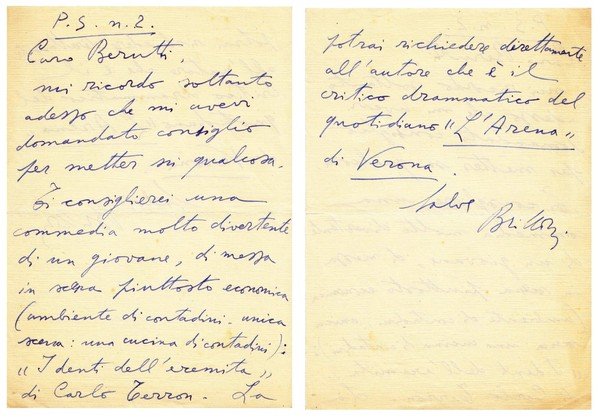 P.S. n. 2.
Caro Berutti,
mi ricordo soltanto
adesso che mi avevi
domandato consiglio
per metter su qualcosa.
Ti consiglierei una
commedia molto divertente
di un giovane, di messa
in scena piuttosto economica
(ambiente di contadini. unica
scena: una cucina di contadini):
"I denti dell'eremita"
di Carlo Terron. La
potrai richiedere direttamente
all'autore che è il
critico drammatico del
quotidiano "L'Arena"
di Verona.
Salve